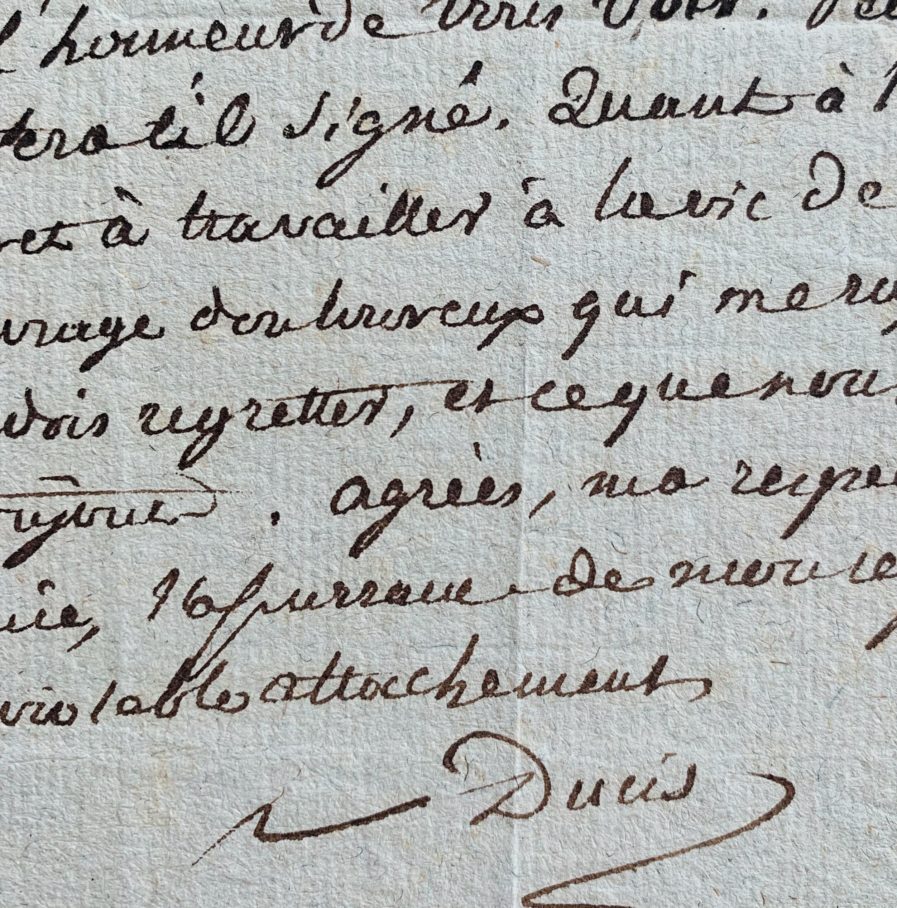 l'honneur de vous voir.
sera t'il signé. Quant à
et à travailler à la vie de
ouvrage douloureux qui me
dois regretter, et ce que nou
toujours. agréés, ma respec
l'assurance de mon
violable attachement
Ducis